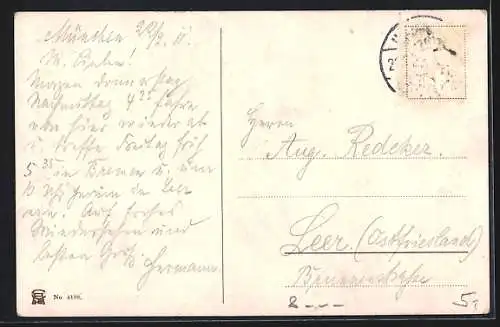 München 20/9. 11.
M. Onkel!
Morgen donnerstag
Nachmittag 4²⁵ fahre
von hier wieder ab
u. treffe Freitag früh
5³⁵ in Bremen u. um
10 Uhr herum in Leer
ein. Auf frohes
Wiedersehen und
besten Gruß
Hermann.
No. 4196.
Herrn
Aug. Redeker.
Leer. (Ostfriesland)